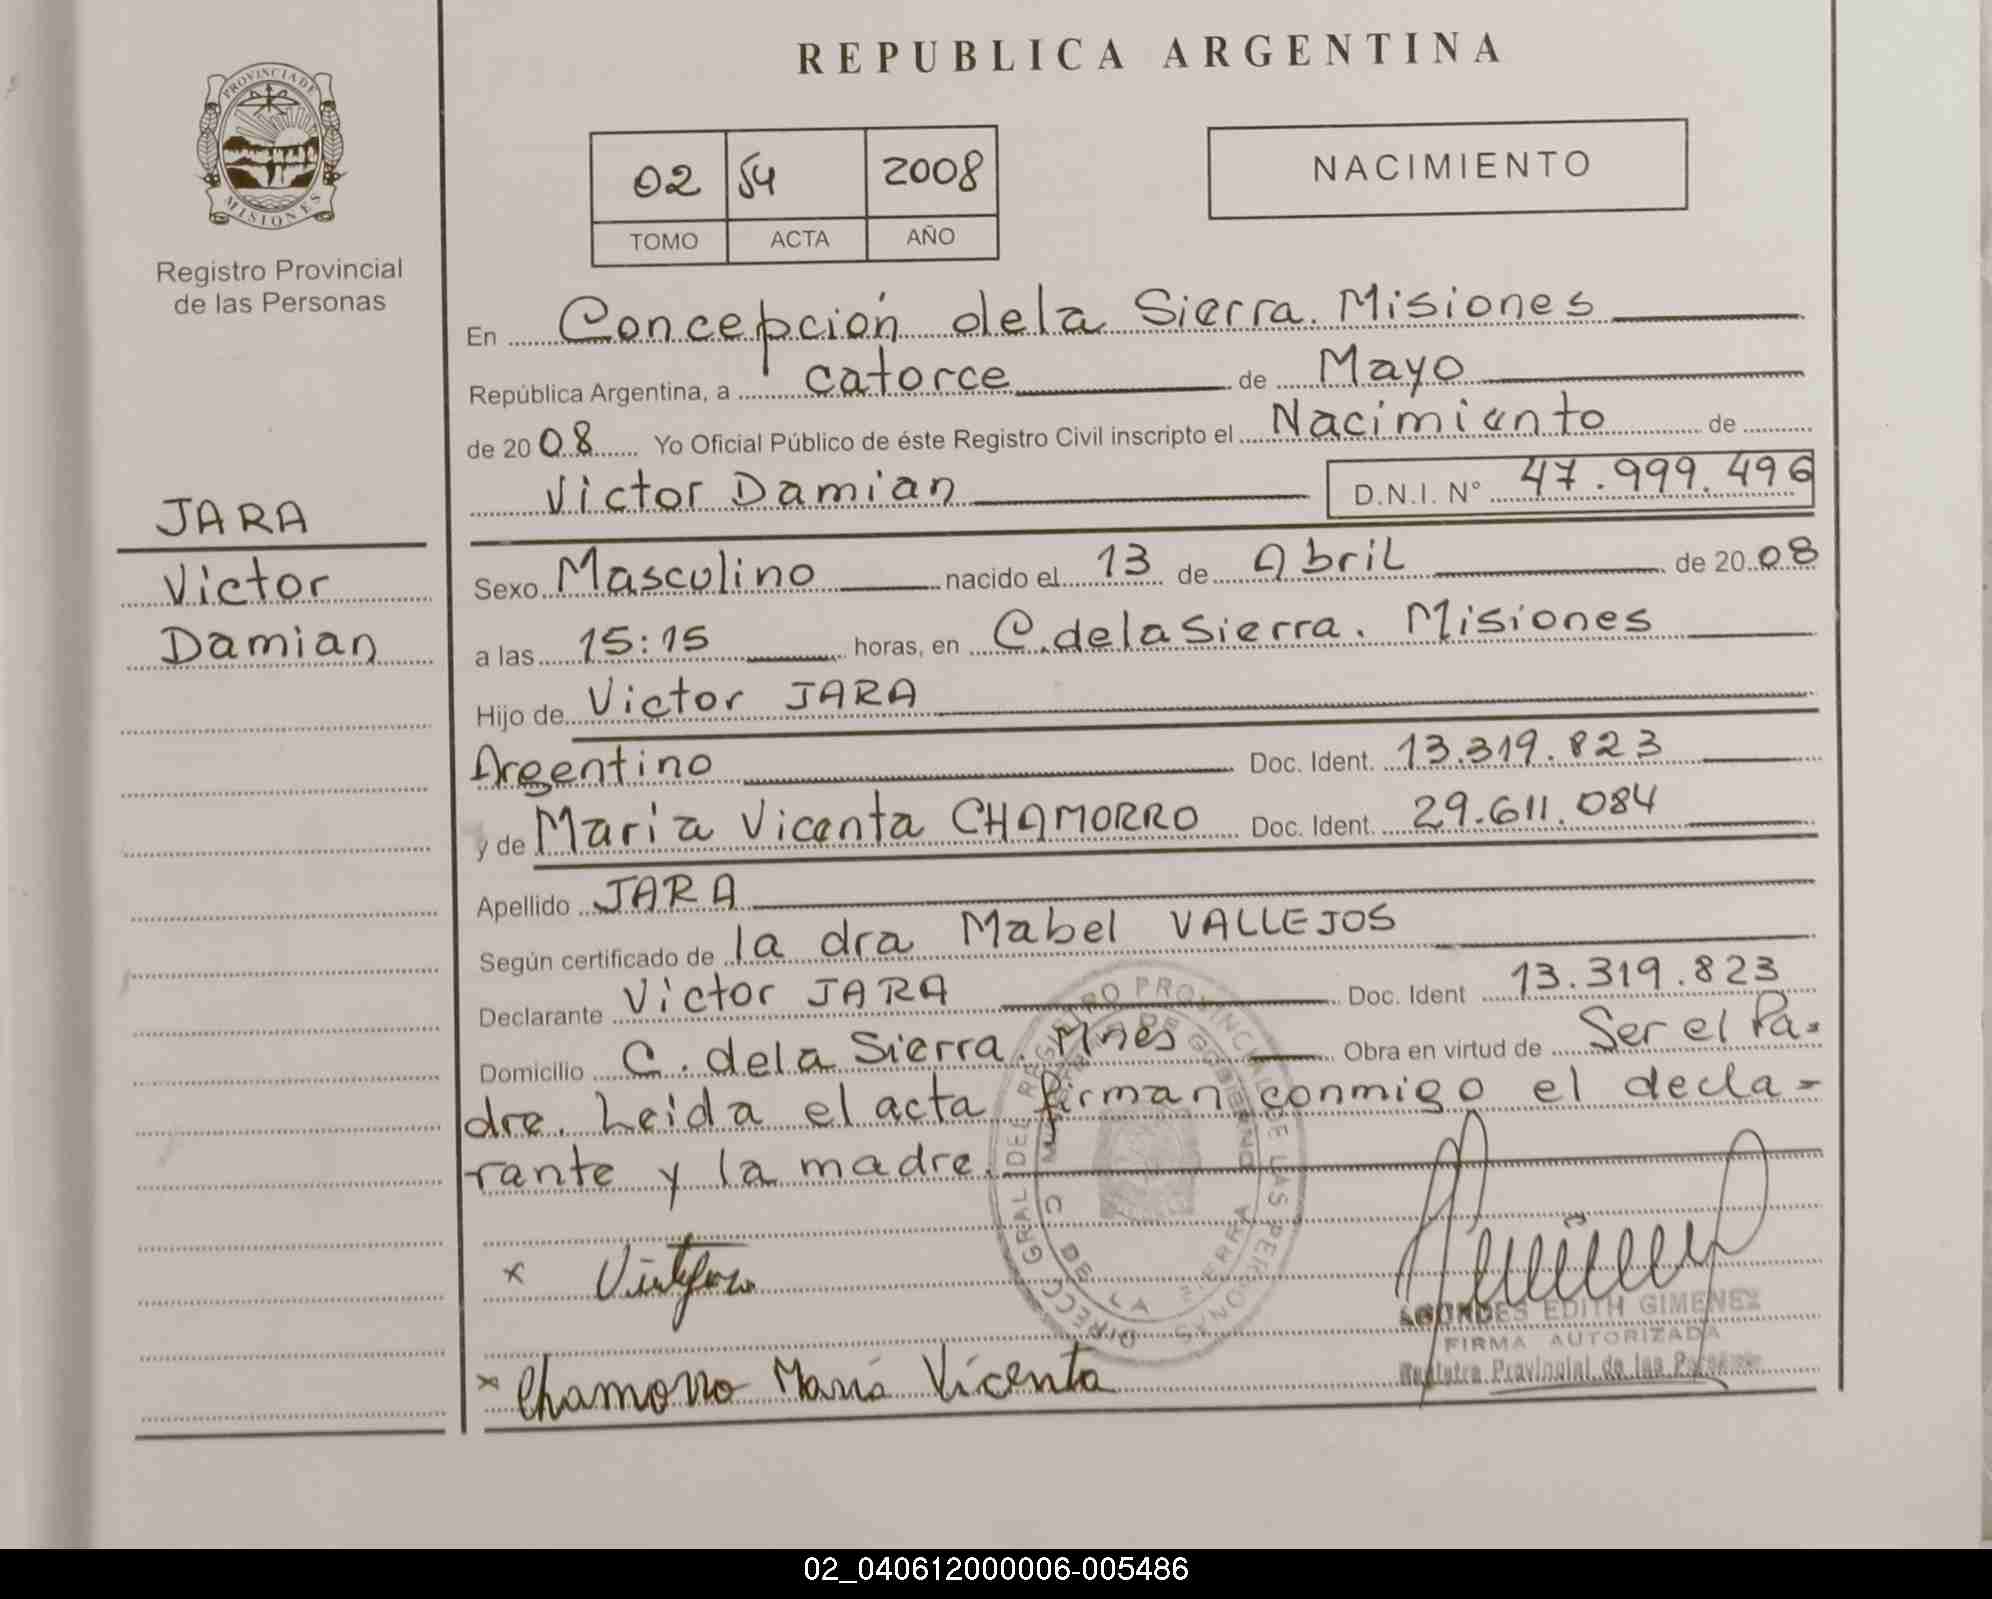 REPUBLICA ARGENTINA
PROVINCIA DE
MISIONES
Registro Provincial
de las Personas
02 54 2008
TOMO ACTA AÑO
NACIMIENTO
En Concepción dela Sierra. Misiones
República Argentina, a catorce de Mayo
de 20 08 Yo Oficial Público de éste Registro Civil inscripto el Nacimiento de
Victor Damian D.N.I. N° 47.999.496
JARA
Victor
Damian
Sexo Masculino nacido el 13 de Abril de 20 08
a las 15:15 horas, en C. dela Sierra. Misiones
Hijo de Victor JARA
Argentino Doc. Ident. 13.319.823
y de Maria Vicenta CHAMORRO Doc. Ident. 29.611.084
Apellido JARA
Según certificado de la dra Mabel VALLEJOS
Declarante Victor JARA Doc. Ident 13.319.823
Domicilio C. dela Sierra. Mnes Obra en virtud de Ser el Pa-
dre. Leida el acta firman conmigo el decla-
rante y la madre.
DIRECC GRAL DEL REGISTRO PROVINCIAL DE LAS PERSONAS
C DE LA SIERRA
x
x Chamorro María Vicenta
LOURDES EDITH GIMENEZ
FIRMA AUTORIZADA
Registro Provincial de las Personas
02_040612000006-005486